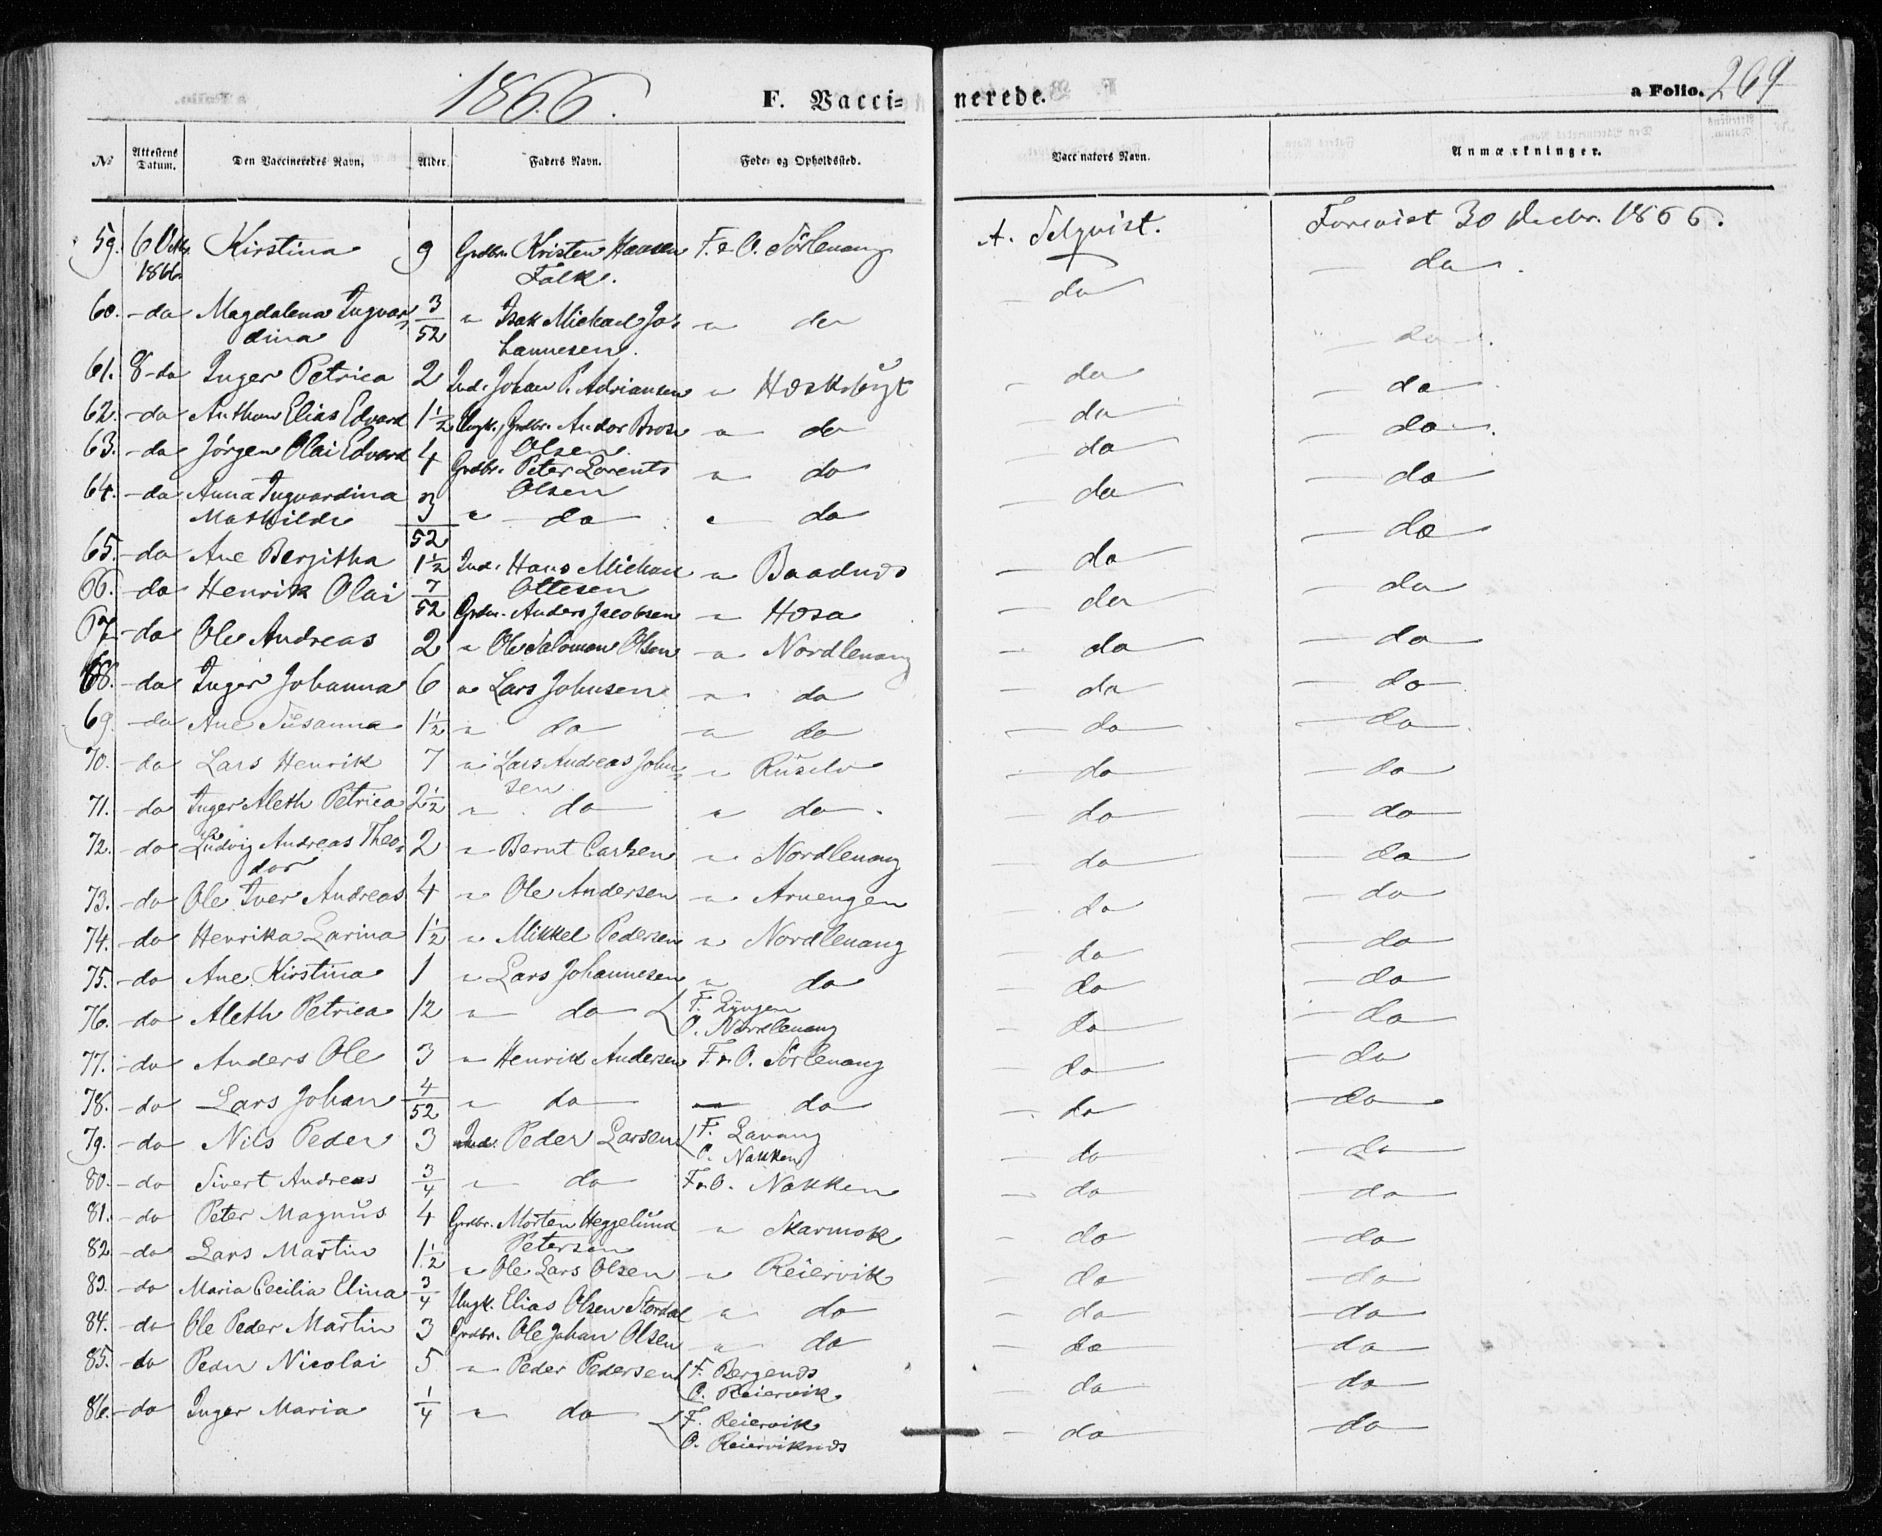 1866.
F. Vacci= nerede.
a Folio. 269
No | Attestens Datum. | Den Vaccineredes Navn. | Alder. | Faders Navn. | Føde- og Opholdssted. | Vaccinators Navn. | Anmærkninger.
59. | 6 Octbr. 1866 | Kirstina | 9 | Grdbr. Kristen Hansen Falk. | F. & O. Sörlenang | A. Selqvist. | Forevist 30 Decbr. 1866.
60. | - do | Magdalena Ingvardina | 3/52 | " Isak Michael Johannesen. | " do | - do | - do
61. | 8 - do | Inger Petrica | 2 | Ind. Johan P. Adriansen | " | - do | - do
62. | - do | Anthon Elias Edvard | 1½ | Ungk., Grdbr. Andor Olsen | " do | - do | - do
63. | - do | Jørgen Olai Edvard | 4 | Grdbr. Peter Lorents Olsen | " do | - do | - do
64. | - do | Anna Ingvardina Mathilde | 3/52 | " do | " do | - do | - do
65. | - do | Ane Bergitha | 1½ | Ind. Hans Michael Ottesen | " Baadnæs | - do | - do
66. | - do | Henrik Olai | 7/52 | Grdm. Anders Jacobsen | " | - do | - do
67. | - do | Ole Andreas | 2 | " Ole Salomon Olsen | " Nordlenang | - do | - do
68. | - do | Inger Johanna | 6 | " Lars Johnsen | " do | - do | - do
69. | - do | Ane Susanna | 1½ | " do | " do | - do | - do
70. | - do | Lars Henrik | 7 | " Lars Andreas Johnsen | " Ruselv | - do | - do
71. | - do | Inger Aleth Petrica | 2½ | " do | " do. | - do | - do
72. | - do | Ludvig Andreas Theodor | 2 | " Bernt Carlsen | " Nordlenang | - do | - do
73. | - do | Ole Iver Andreas | 4 | " Ole Andersen | " Arnengen | - do | - do
74. | - do | Henrika Larina | 1½ | " Mikkel Pedersen | " Nordlenang | - do | - do
75. | - do | Ane Kirstina | 1 | " Lars Johannesen | " do | - do | - do
76. | - do | Aleth Petrica | 12 | " do | F. Lyngen O. Nordlenang | - do | - do
77. | - do | Anders Ole | 3 | " Henrik Andersen | F. & O. Sörlenang | - do | - do
78. | - do | Lars Johan | 4/52 | " do | - do | - do | - do
79. | - do | Nils Peder | 3 | Ind. Peder Larsen | F. Lavang O. Nakken | - do | - do
80. | - do | Sivert Andreas | 3/4 | " do | F. & O. Nakken | - do | - do
81. | - do | Peter Magnus | 4 | Grdbr. Morten Heggelund Petersen | " Skarmok | - do | - do
82. | - do | Lars Martin | 1½ | " Ole Lars Olsen | " Reiervik | - do | - do
83. | - do | Maria Cecilia Elina | 3/4 | Ungk. Elias Olsen Stordal | " do | - do | - do
84. | - do | Ole Peder Martin | 3 | Grdbr. Ole Johan Olsen | " do | - do | - do
85. | - do | Peder Nicolai | 5 | " Peder Pedersen | F. Bergenæs O. Reiervik | - do | - do
86. | - do | Inger Maria | 1/4 | " do | F. Reiervik O. Reierviknæs | - do | - do